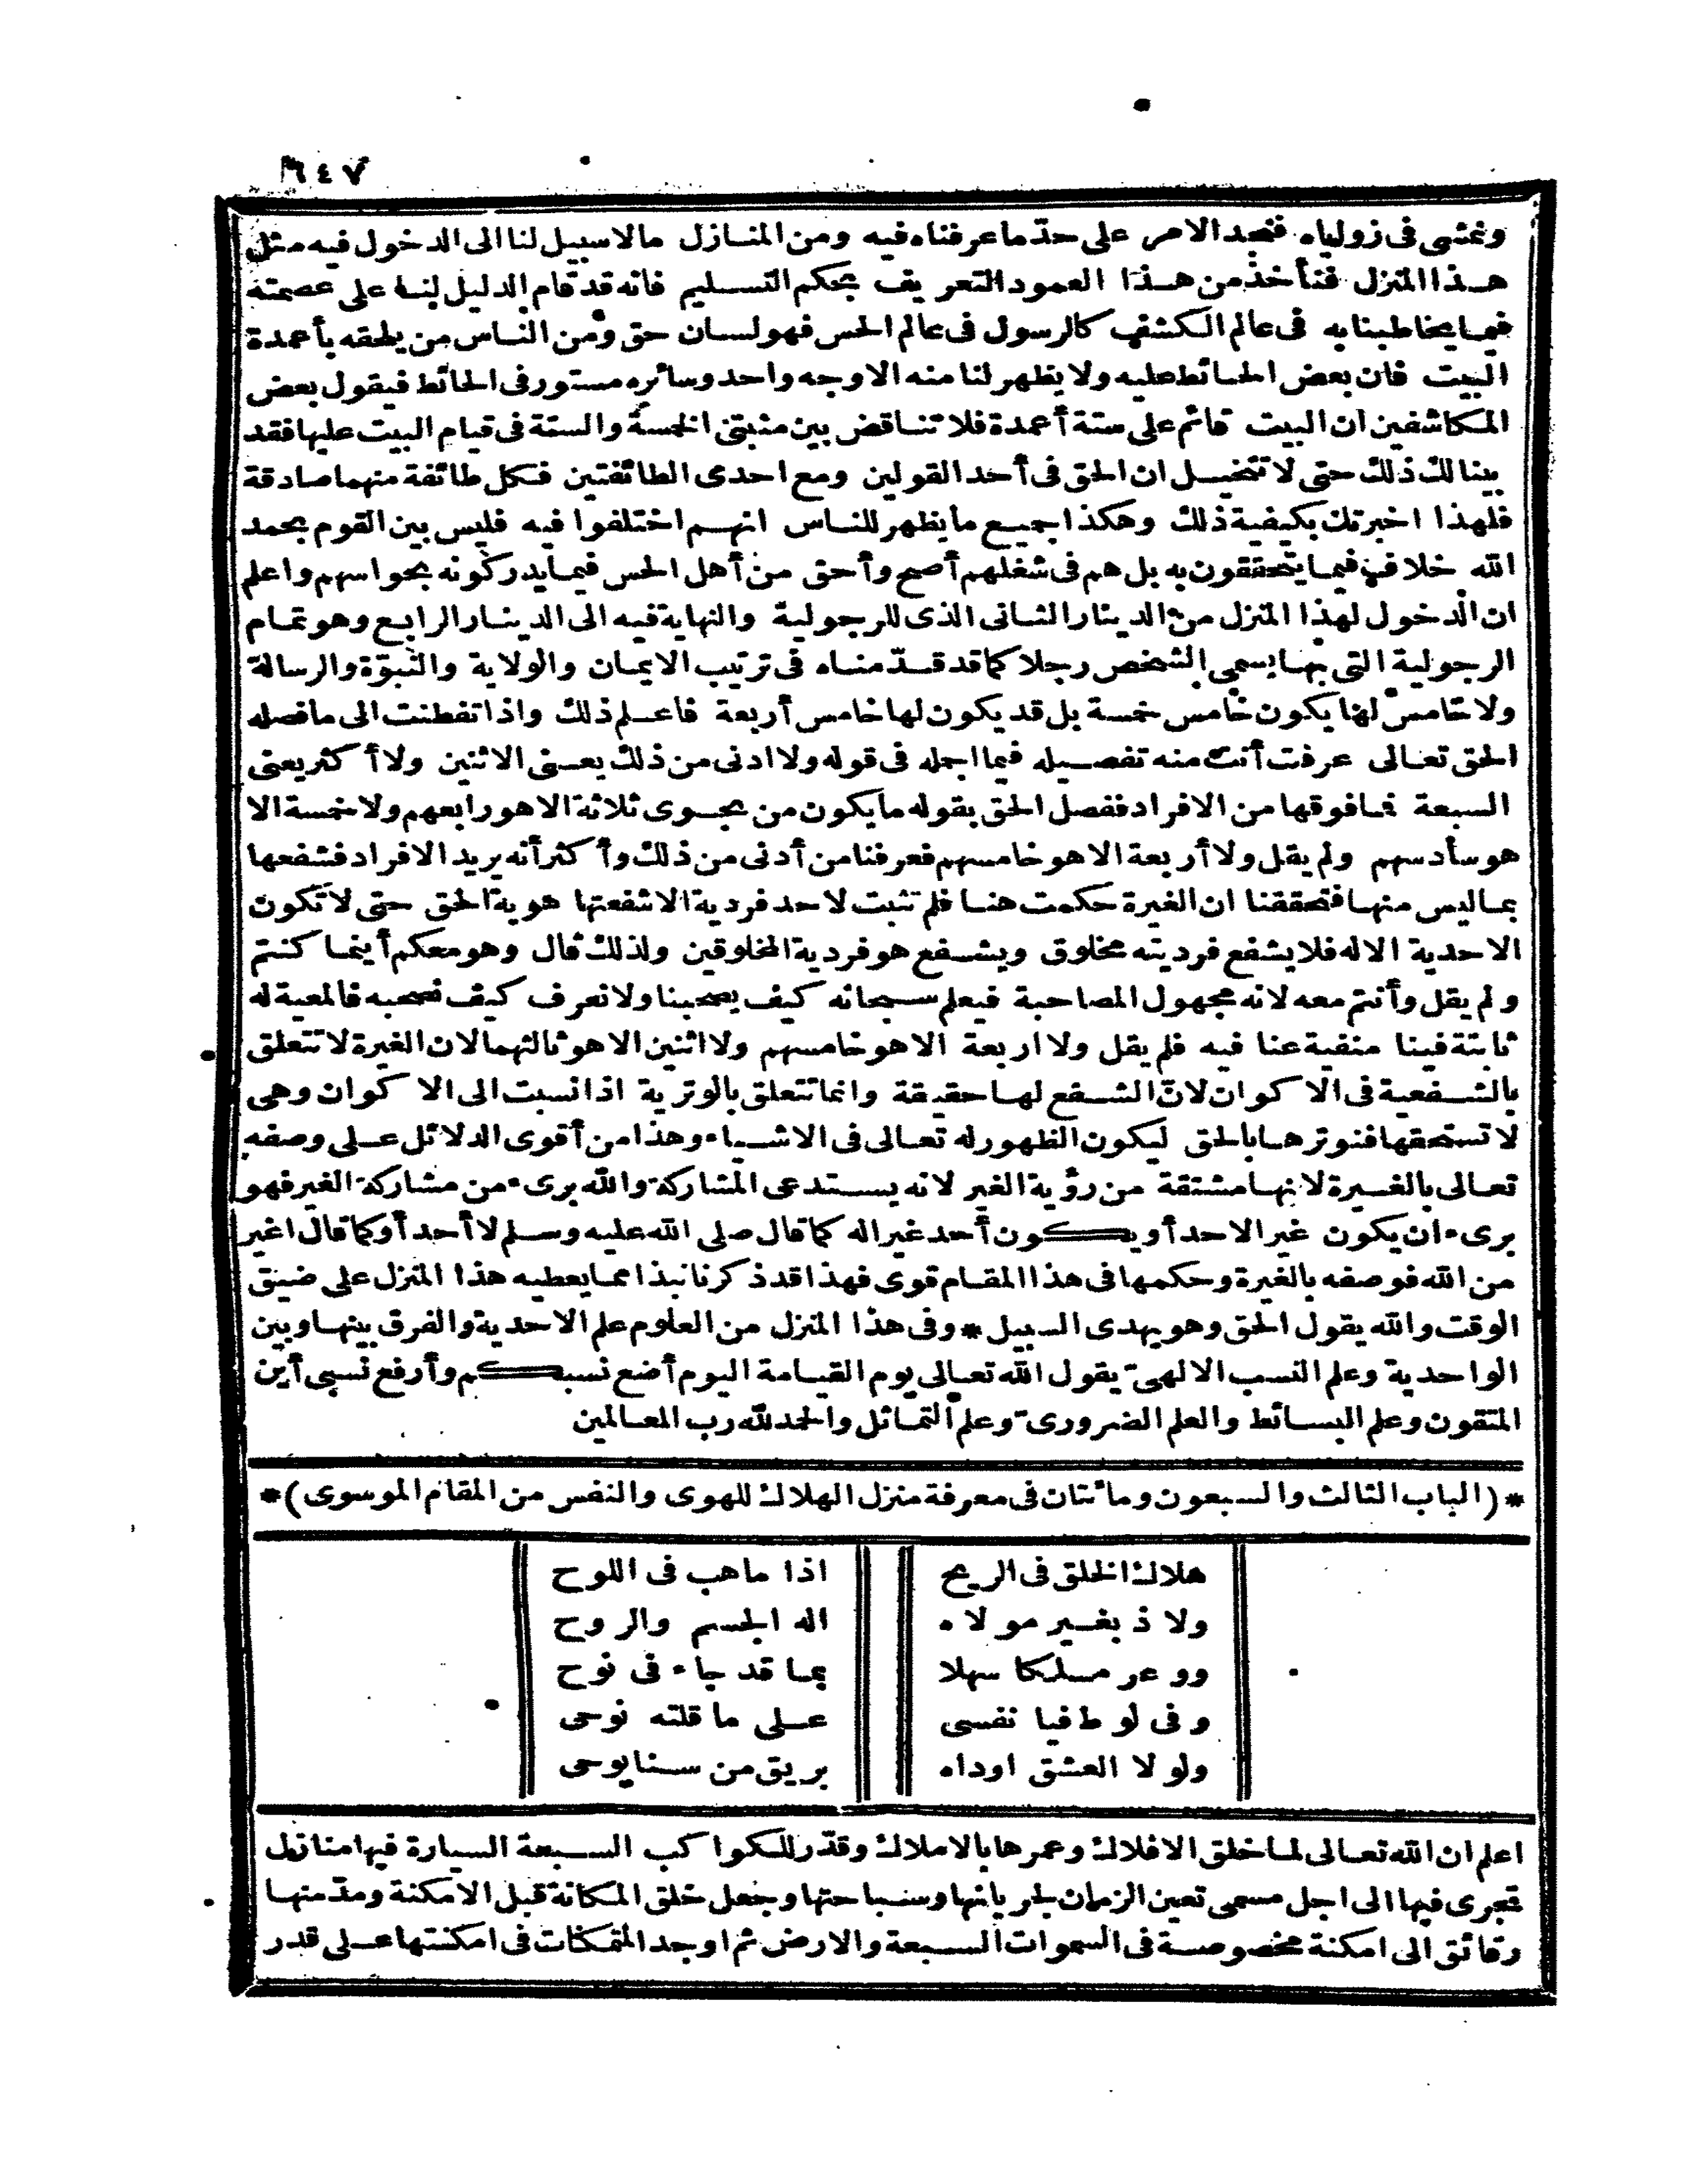 ٦٤٧
ونمشى فى زواياه فنجد الامر على حدّ ما عرفناه فيه ومن المنازل ما لا سبيل لنا الى الدخول فيه مثل
هذا المنزل فنأخذ من هذا العمود التعريف بحكم التسليم فانه قد قام الدليل لنا على عصمته
فيما يخاطبنا به فى عالم الكشف كالرسول فى عالم الحس فهو لسان حق ومن الناس من يلحقه بأعمدة
البيت فان بعض الحائط عليه ولا يظهر لنا منه الا وجه واحد وسائره مستور فى الحائط فيقول بعض
المكاشفين ان البيت قائم على ستة أعمدة فلا تناقض بين مثبتى الخمسة والستة فى قيام البيت عليها فقد
بينا لك ذلك حتى لا تتخيل ان الحق فى أحد القولين ومع احدى الطائفتين فكل طائفة منهما صادقة
فلهذا اخبرتك بكيفية ذلك وهكذا جميع ما يظهر للناس انهم اختلفوا فيه فليس بين القوم بحمد
الله خلاف فيما يتحققون به بل هم فى شغلهم أصح وأحق من أهل الحس فيما يدركونه بحواسهم واعلم
ان الدخول لهذا المنزل من الدينار الثانى الذى للرجولية والنهاية فيه الى الدينار الرابع وهو تمام
الرجولية التى بها يسمى الشخص رجلا كما قد قدّمناه فى ترتيب الايمان والولاية والنبوّة والرسالة
ولا خامس لها يكون خامس خمسة بل قد يكون لها خامس أربعة فاعلم ذلك واذا تفطنت الى ما فصله
الحق تعالى عرفت أنت منه تفصيله فيما اجمله فى قوله ولا ادنى من ذلك يعنى الاثنين ولا أكثر يعنى
السبعة فما فوقها من الافراد ففصل الحق بقوله ما يكون من نجوى ثلاثة الا هو رابعهم ولا خمسة الا
هو سادسهم ولم يقل ولا أربعة الا هو خامسهم فعرفنا من أدنى من ذلك وأكثر أنه يريد الافراد فشفعها
بما ليس منها فتحققنا ان الغيرة حكمت هنا فلم تثبت لاحد فردية الا شفعتها هوية الحق حتى لا تكون
الاحدية الا له فلا يشفع فرديته مخلوق ويشفع هو فردية المخلوقين ولذلك قال وهو معكم أينما كنتم
ولم يقل وأنتم معه لانه مجهول المصاحبة فيعلم سبحانه كيف يصحبنا ولا نعرف كيف نصحبه فالمعية له
ثابتة فينا منفية عنا فيه فلم يقل ولا اربعة الا هو خامسهم ولا اثنين الا هو ثالثهما لان الغيرة لا تتعلق
بالشفعية فى الاكوان لانّ الشفع لها حقيقة وانما تتعلق بالوترية اذا نسبت الى الاكوان وهى
لا تستحقها فنوترها بالحق ليكون الظهور له تعالى فى الاشياء وهذا من أقوى الدلائل على وصفه
تعالى بالغيرة لانها مشتقة من رؤية الغير لانه يستدعى المشاركة والله برىء من مشاركة الغير فهو
برىء ان يكون غير الاحد أو يكون أحد غيرا له كما قال صلى الله عليه وسلم لا أحد أو كما قال اغير
من الله فوصفه بالغيرة وحكمها فى هذا المقام قوى فهذا قد ذكرنا نبذا مما يعطيه هذا المنزل على ضيق
الوقت والله يقول الحق وهو يهدى السبيل * وفى هذا المنزل من العلوم علم الاحدية والفرق بينها وبين
الواحدية وعلم النسب الالهىّ يقول الله تعالى يوم القيامة اليوم أضع نسبكم وأرفع نسبى أين
المتقون وعلم البسائط والعلم الضرورىّ وعلم التماثل والحمد لله رب العالمين
* (الباب الثالث والسبعون ومائتان فى معرفة منزل الهلاك للهوى والنفس من المقام الموسوى) *
هلاك الخلق فى الريح اذا ما هب فى اللوح
ولاذ بغير مولاه اله الجسم والروح
ووعر مسلكا سهلا بما قد جاء فى نوح
وفى لوط فيا نفسى على ما قلته نوحى
ولولا العشق اوداه بريق من سنا يوحى
اعلم ان الله تعالى لما خلق الافلاك وعمرها بالاملاك وقدّر للكواكب السبعة السيارة فيها منازل
تجرى فيها الى اجل مسمى تعين الزمان لجريانها وسباحتها وجعل خلق المكانة قبل الامكنة ومدّ منها
رقائق الى امكنة مخصوصة فى السموات السبعة والارض ثم اوجد المتمكنات فى امكنتها على قدر